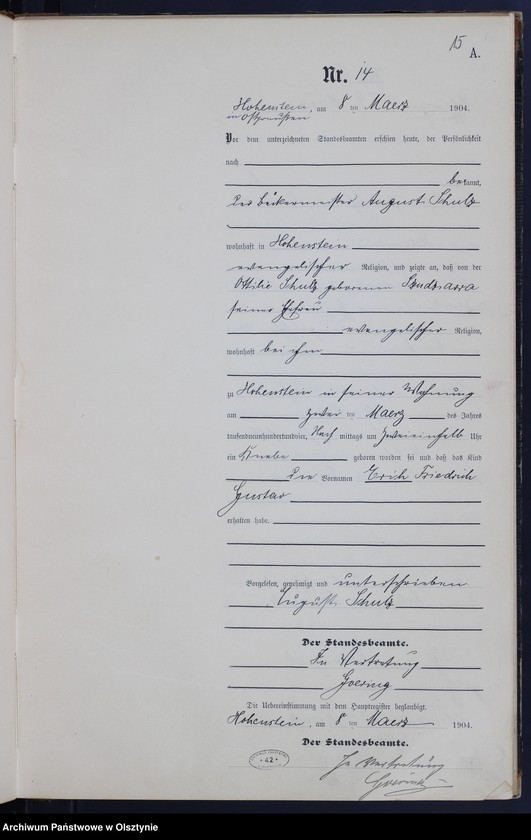 15
A.
Nr. 14
Hohenstein, am 8 ten Maerz 1904.
in Ostpreußen
Vor dem unterzeichneten Standesbeamten erschien heute, der Persönlichkeit
nach
bekannt,
der Bäckermeister August Schulz
wohnhaft in Hohenstein
evangelischer Religion, und zeigte an, daß von der
Ottilie Schulz geborenen
seiner Ehefrau
evangelischer Religion,
wohnhaft bei ihm
zu Hohenstein in seiner Wohnung
am zwei ten Maerz des Jahres
tausendneunhundertundvier, Nach mittags um zweieinhalb Uhr
ein Knabe geboren worden sei und daß das Kind
die Vornamen Erich Friedrich
Gustav
erhalten habe.
Vorgelesen, genehmigt und unterschrieben
August Schulz
Der Standesbeamte.
In Vertretung
Goering
Die Uebereinstimmung mit dem Hauptregister beglaubigt.
Hohenstein, am 8 ten Maerz 1904.
Der Standesbeamte.
42
In Vertretung
Archiwum Państwowe w Olsztynie